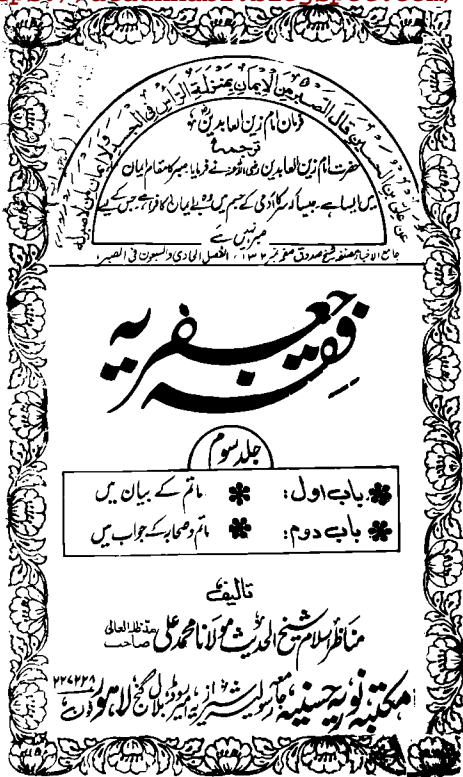 عن علی بن الحسین قال الصبر من الایمان بمنزلة الرأس فی الجسد ولا ایمان لمن لا صبر له
فرمان امام زین العابدین
ترجمہ
حضرت امام زین العابدین رضی اللہ عنہ نے فرمایا، صبر کا مقام ایمان
میں ایسا ہے، جیسا کہ سر کا آدمی کے جسم میں
صبر نہیں ہے
جامع الاخبار مصنفہ شیخ صدوق صفحہ نمبر ۱۳۲، الفصل الحادی والسبعون فی الصبر
فقہ جعفریہ
جلد سوم
باب اول: ماتم کے بیان میں
باب دوم: ماتم و صحابہ کے جواب میں
تالیف
مناظر اسلام شیخ الحدیث مولانا محمد علی صاحب مدظلہ العالی
مکتبہ نوریہ حسنیہ جامعہ رسولیہ شیرازیہ بلال گنج لاہور فون ۲۲۷۲۲۸